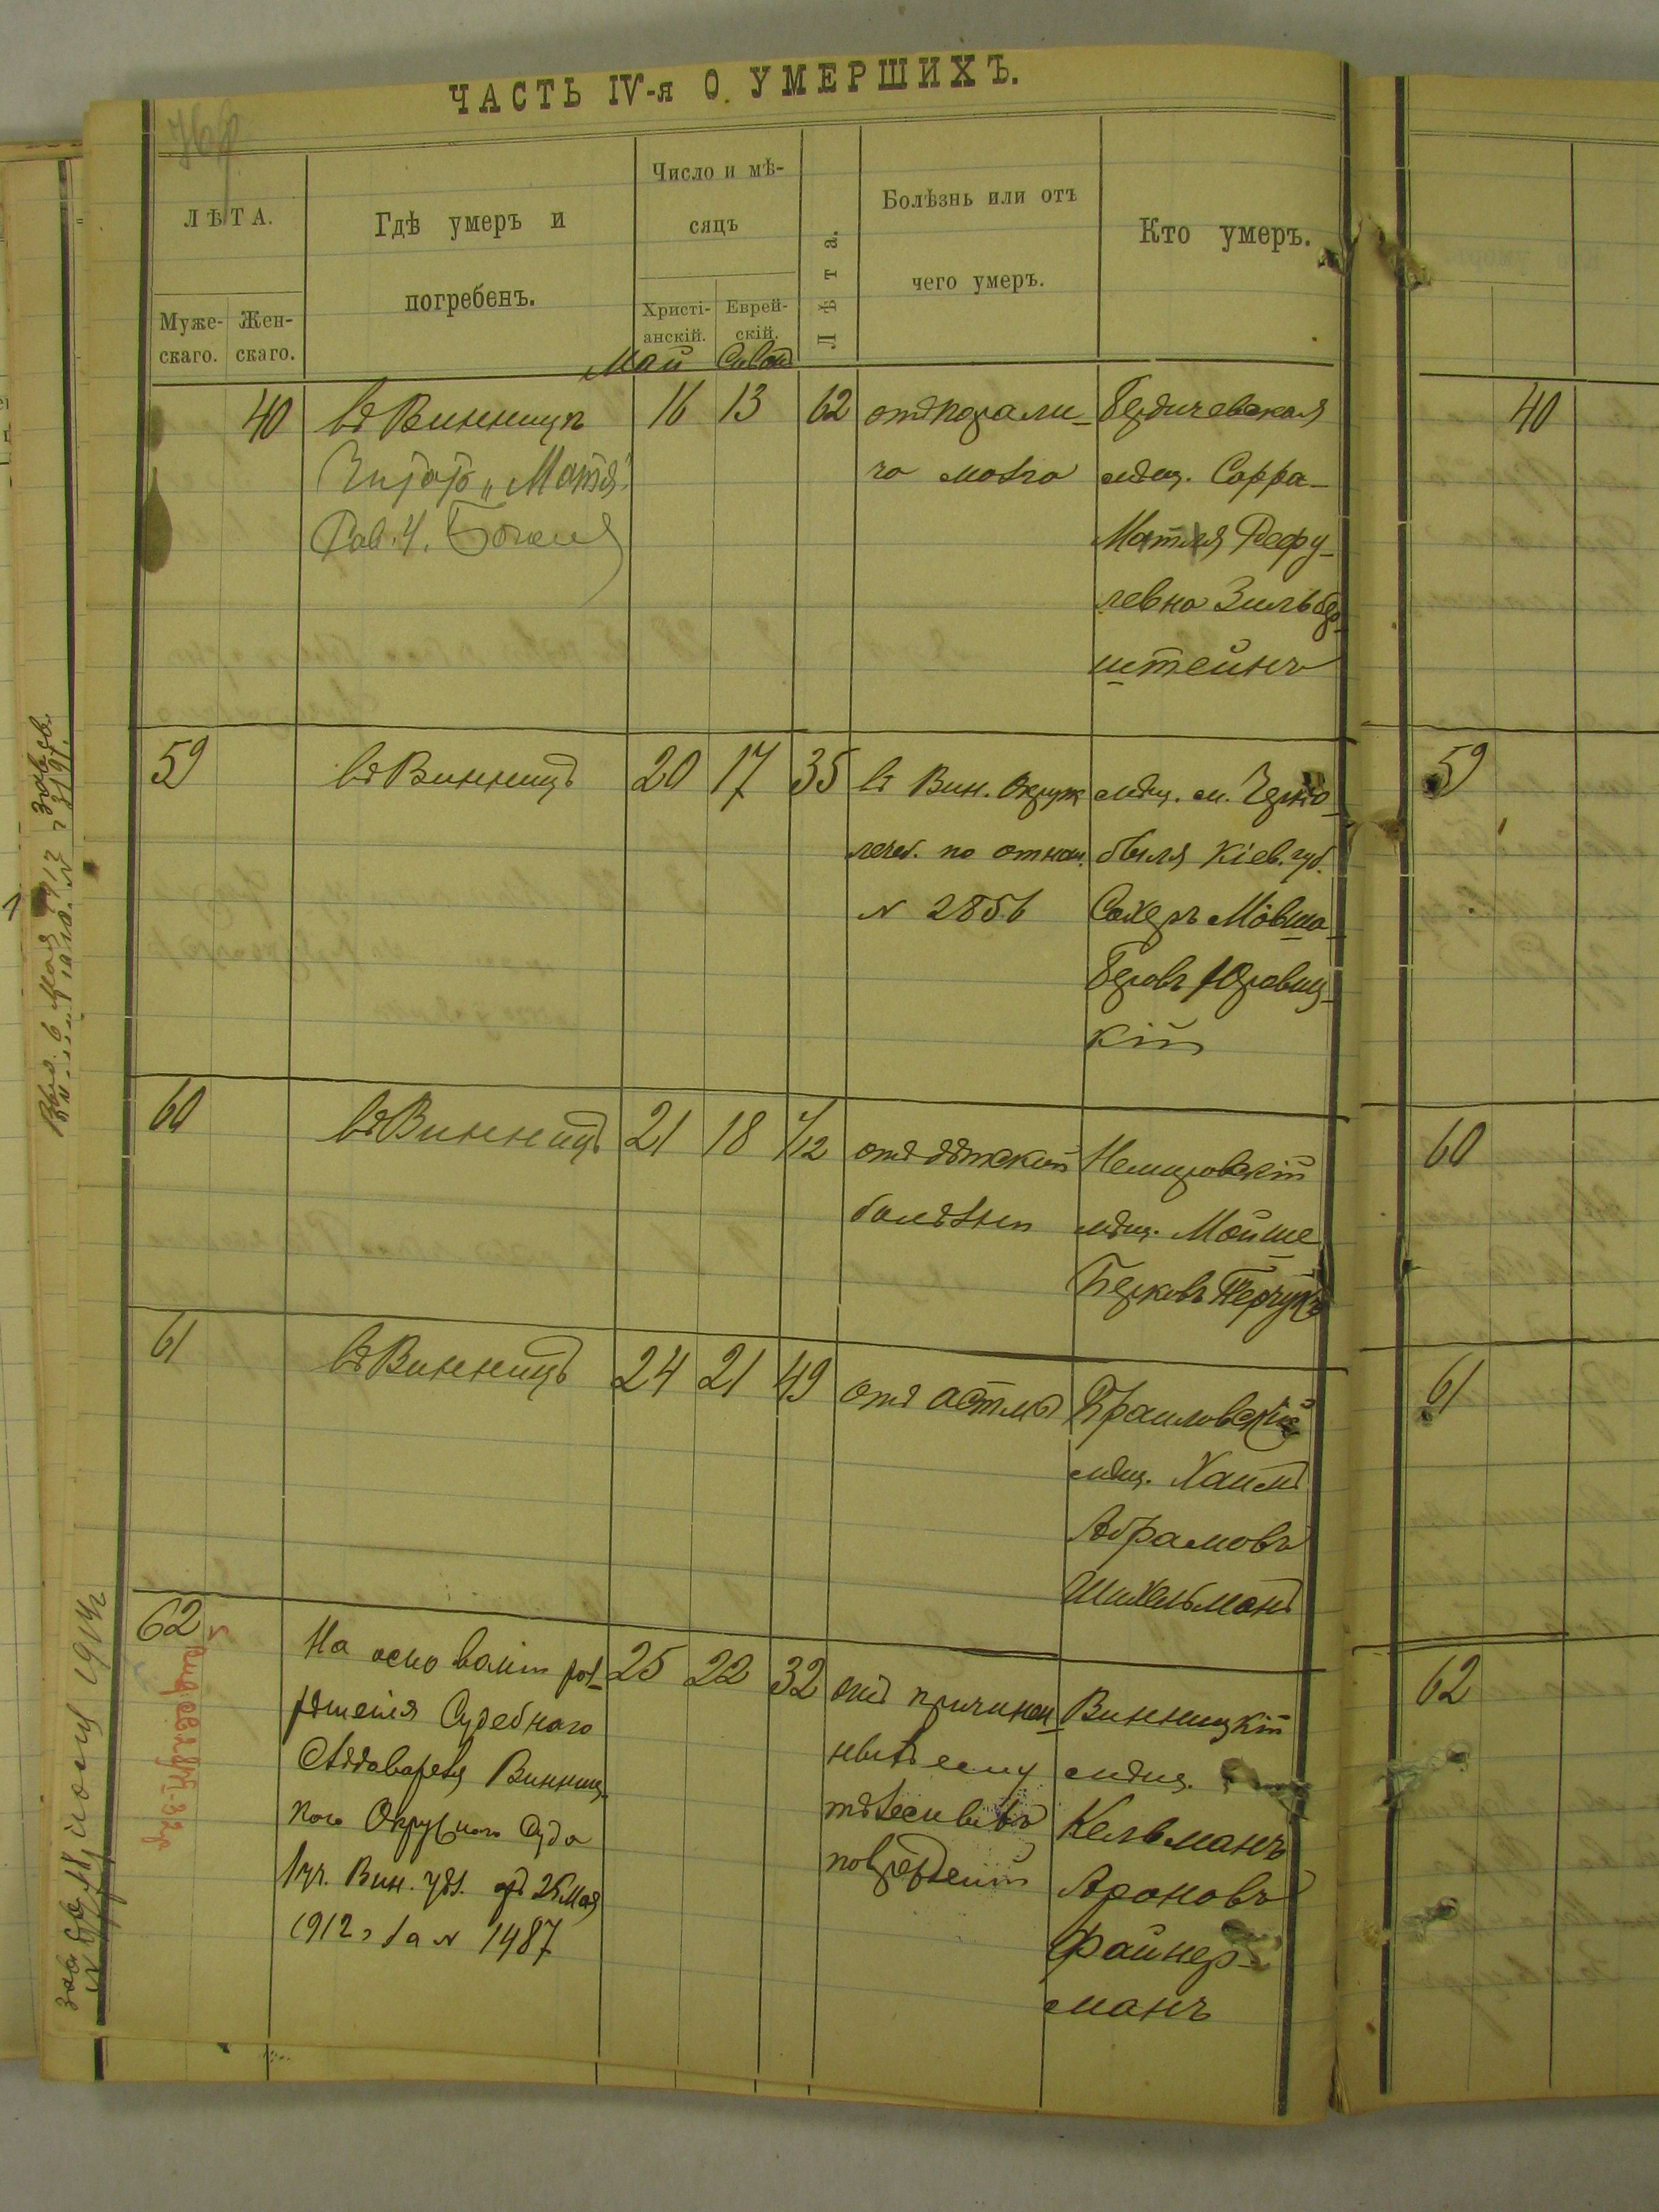 ЧАСТЬ IV-я О УМЕРШИХЪ.
ЛѢТА.
Муже-
скаго.
Жен-
скаго.
Гдѣ умеръ и
погребенъ.
Число и мѣ-
сяцъ
Христі-
анскій.
Еврей-
скій.
Май Сивонъ
Лѣта.
Болѣзнь или отъ
чего умеръ.
Кто умеръ.
40
въ Винницѣ
Читать „Матля"
Рав. Ч.
16 13 62
отъ парали-
ча мозга
Бердичевская
мѣщ. Сарра-
Матля Рефу-
левна Зильбер-
штейнъ
59
въ Винницѣ
20 17 35
въ Вин. Окруж
лечеб. по отнош.
№ 2856
мѣщ. м. Черно-
быля Кіев. губ.
Сахеръ Мовша-
Беровъ Юровиц-
кій
60
въ Винницѣ
21 18 1/12
отъ дѣтской
болѣзни
Немировскій
мѣщ. Мойше
Берковъ Перчукъ
61
въ Винницѣ
24 21 49
отъ астмы
Браиловскій
мѣщ. Хаимъ
Абрамовъ
Шихельманъ
62
На основаніи раз-
рѣшенія Судебнаго
Слѣдователя Винниц-
каго Окружнаго Суда
1 уч. Вин. уѣз. отъ 25 Мая
1912 г за № 1487
25 22 32
отъ причинен-
ныхъ ему
тѣлесныхъ
поврежденій
Винницкій
мѣщ.
Кельманъ
Ароновъ
Файнер-
манъ
40
59
60
61
62